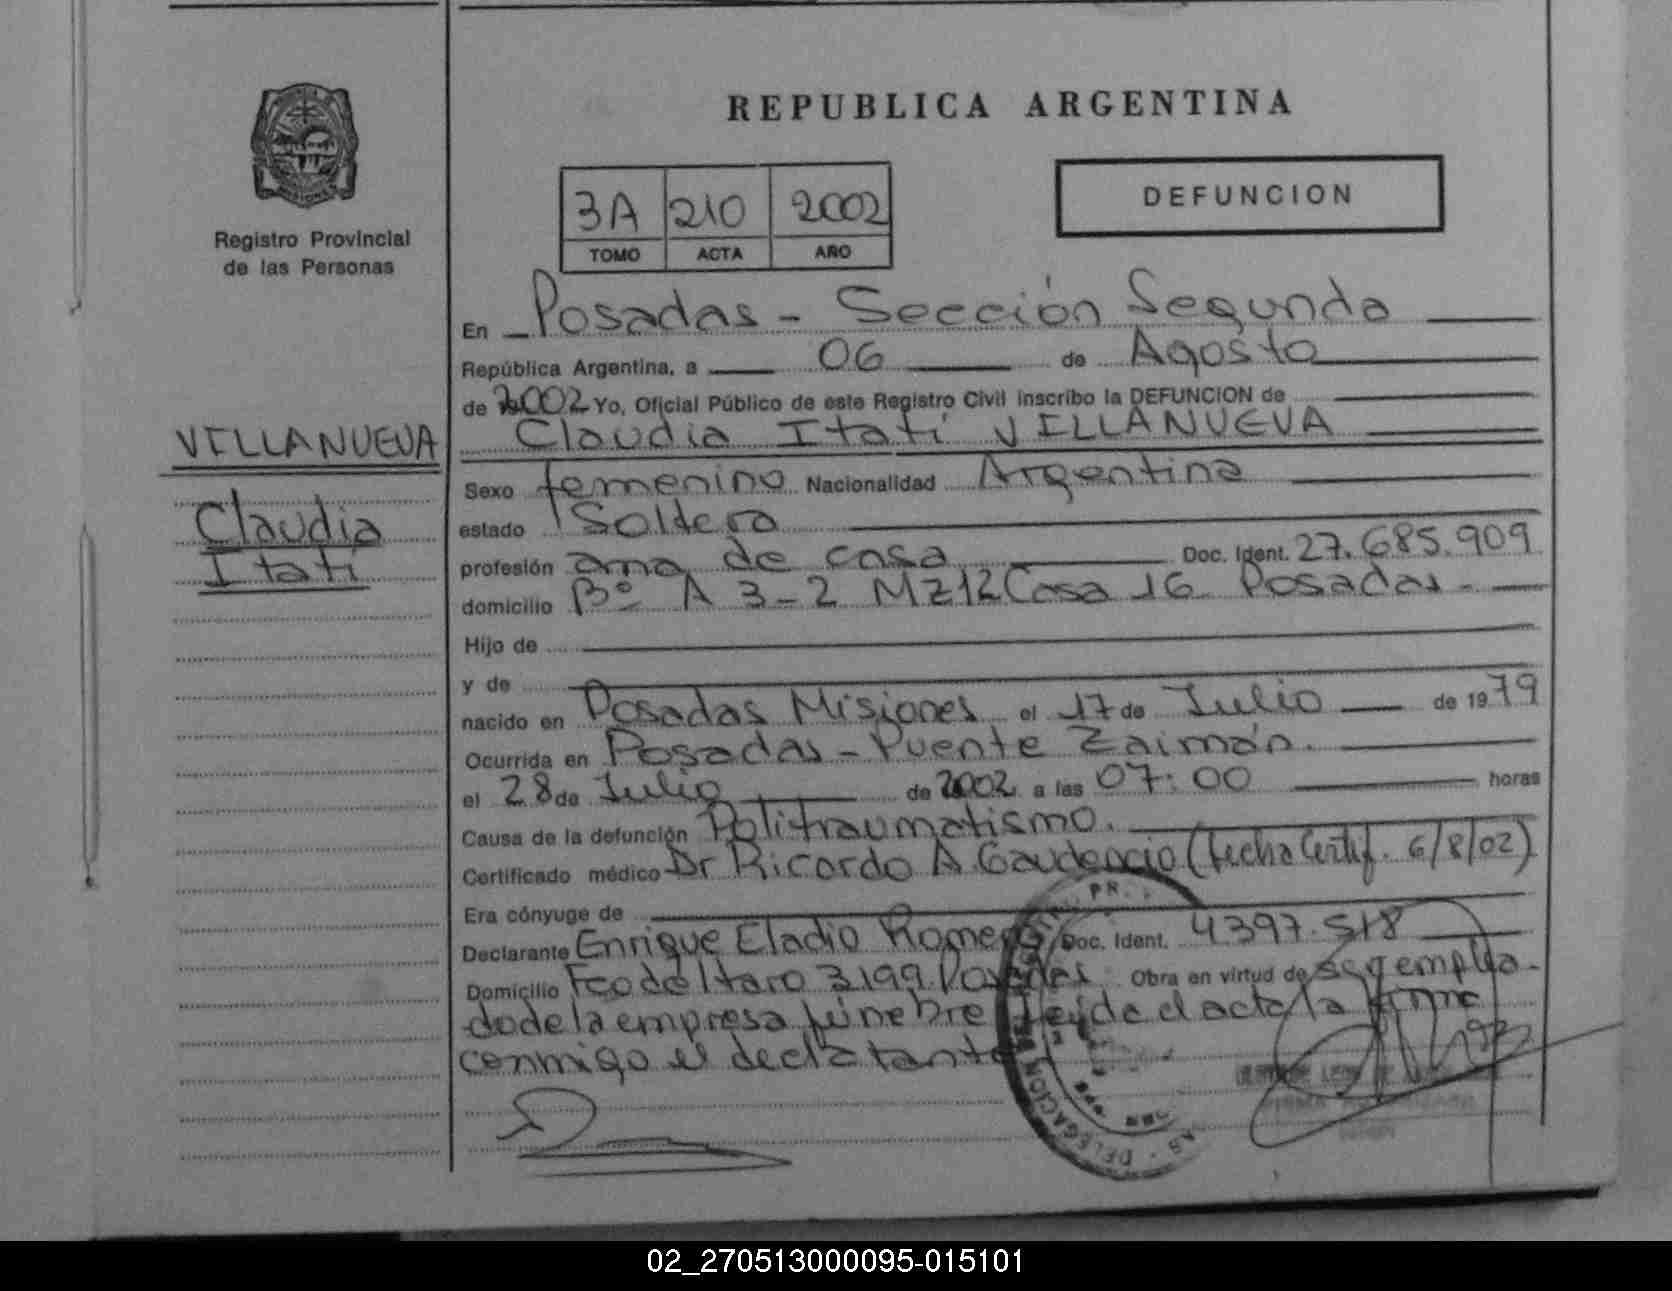 REPUBLICA ARGENTINA
Registro Provincial
de las Personas
3A 210 2002
TOMO ACTA AÑO
DEFUNCION
VILLANUEVA
Claudia
Itatí
En Posadas - Sección Segunda
República Argentina, a 06 de Agosto
de 2002 Yo, Oficial Público de este Registro Civil inscribo la DEFUNCION de
Claudia Itatí VILLANUEVA
Sexo femenino Nacionalidad Argentina
estado Soltera
profesión ama de casa Doc. Ident. 27.685.909
domicilio Bº A 3-2 MZ12 Casa 16 Posadas -
Hijo de
y de
nacido en Posadas Misiones el 17 de Julio de 1979
Ocurrida en Posadas - Puente Zaimán.
el 28 de Julio de 2002 a las 07:00 horas
Causa de la defunción Politraumatismo.
Certificado médico Dr Ricardo A. Gaudencio (fecha Certif. 6/8/02)
Era cónyuge de
Declarante Enrique Eladio Romero Doc. Ident. 4397.518
Domicilio Fco de Haro 3199 Posadas Obra en virtud de ser emplea-
do de la empresa fúnebre leída el acta la firma
conmigo el declarante
DELEGACION
02_270513000095-015101